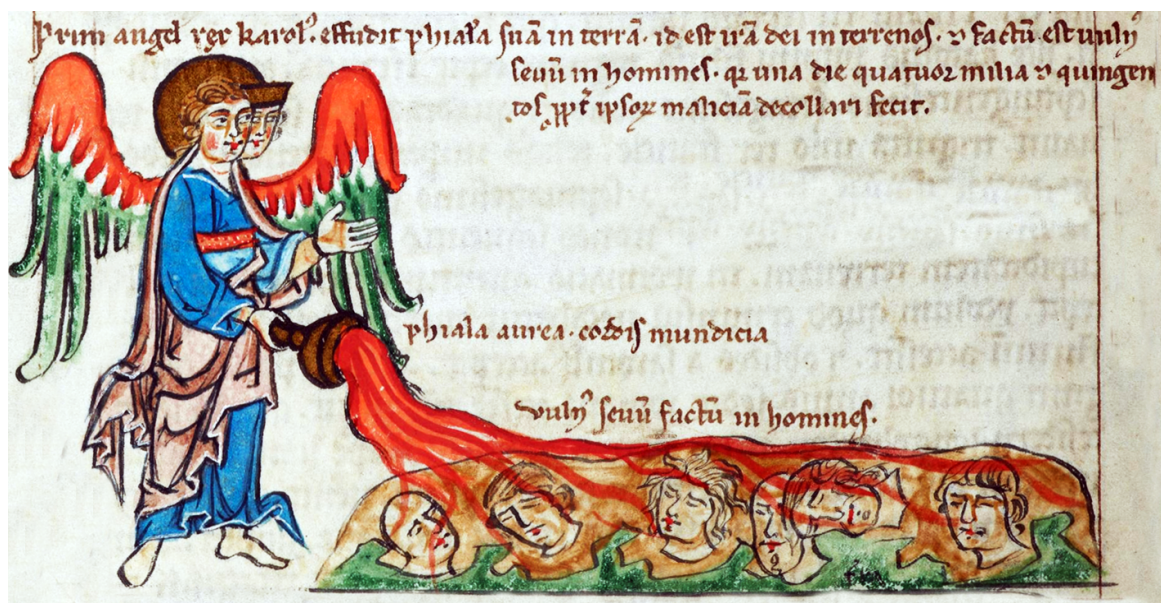 Prim angel rex karolꝰ. effudit phialā suā in terrā. id est irā dei in terrenos. ⁊ factū est vulnꝰ
seuū in homines. qꝛ una die quatuor milia ⁊ quingen
tos ꝓpt̄ ipsoꝝ maliciā decollari fecit.
phiala aurea. cordis mundicia
vulnꝰ seuū factū in homines.